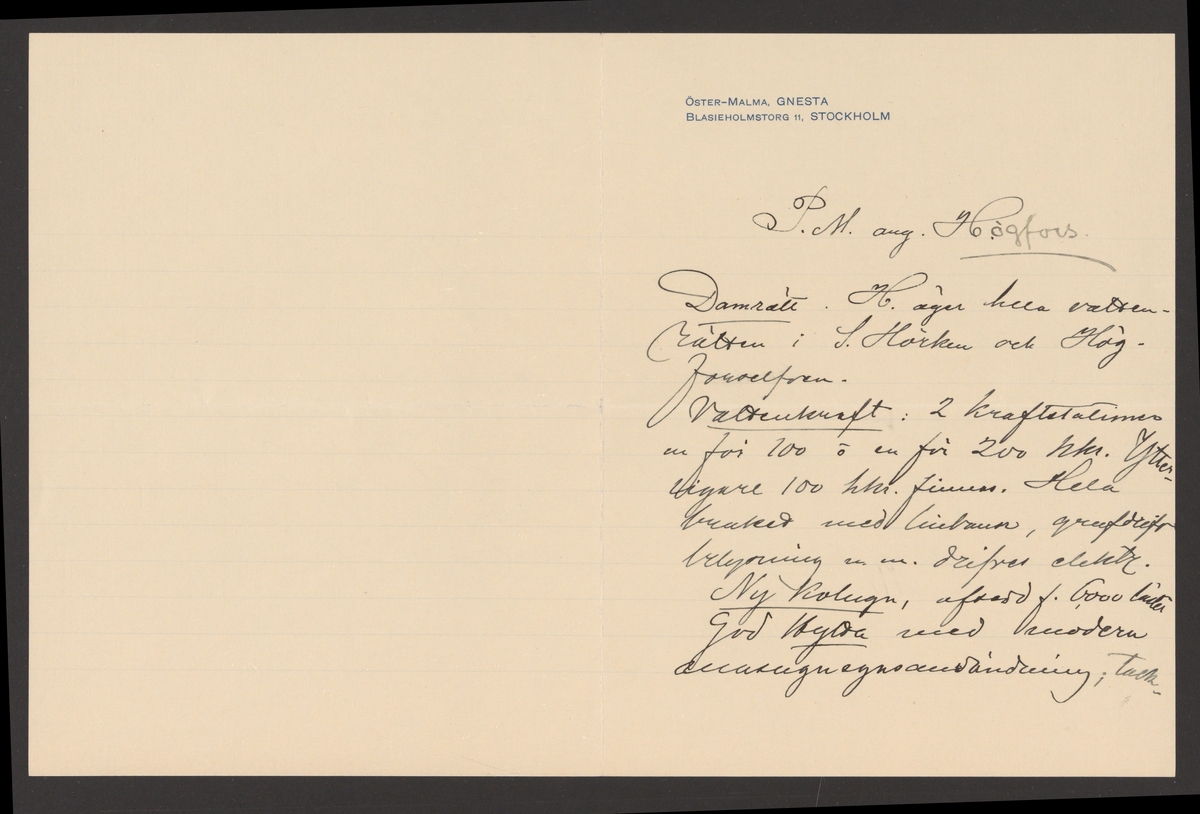 Öster-Malma, GNESTA
Blasieholmstorg 11, STOCKHOLM
P. M. ang. Högfors.
Damrätt. H. äger hela vatten-
rätten i S. Hörken och Hög-
forselfven.
Vattenkraft: 2 kraftstationer
en för 100 o en för 200 hkr. Ytter-
ligare 100 hkr. finnes. Hela
bruket med linbana, grufdrift
belysning m. m. drifves elektr.
Ny Kolugn, afsedd f. 6000 läster
God Hytta med modern
masugnsgasanvändning; tack-